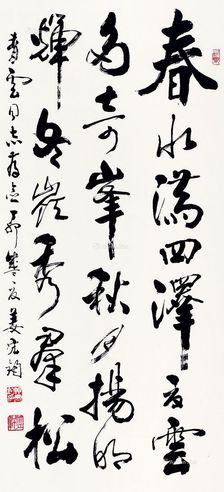 春水滿四澤夏雲
多奇峯秋月揚明
輝冬嶺秀羣松
雲同志 夏姜